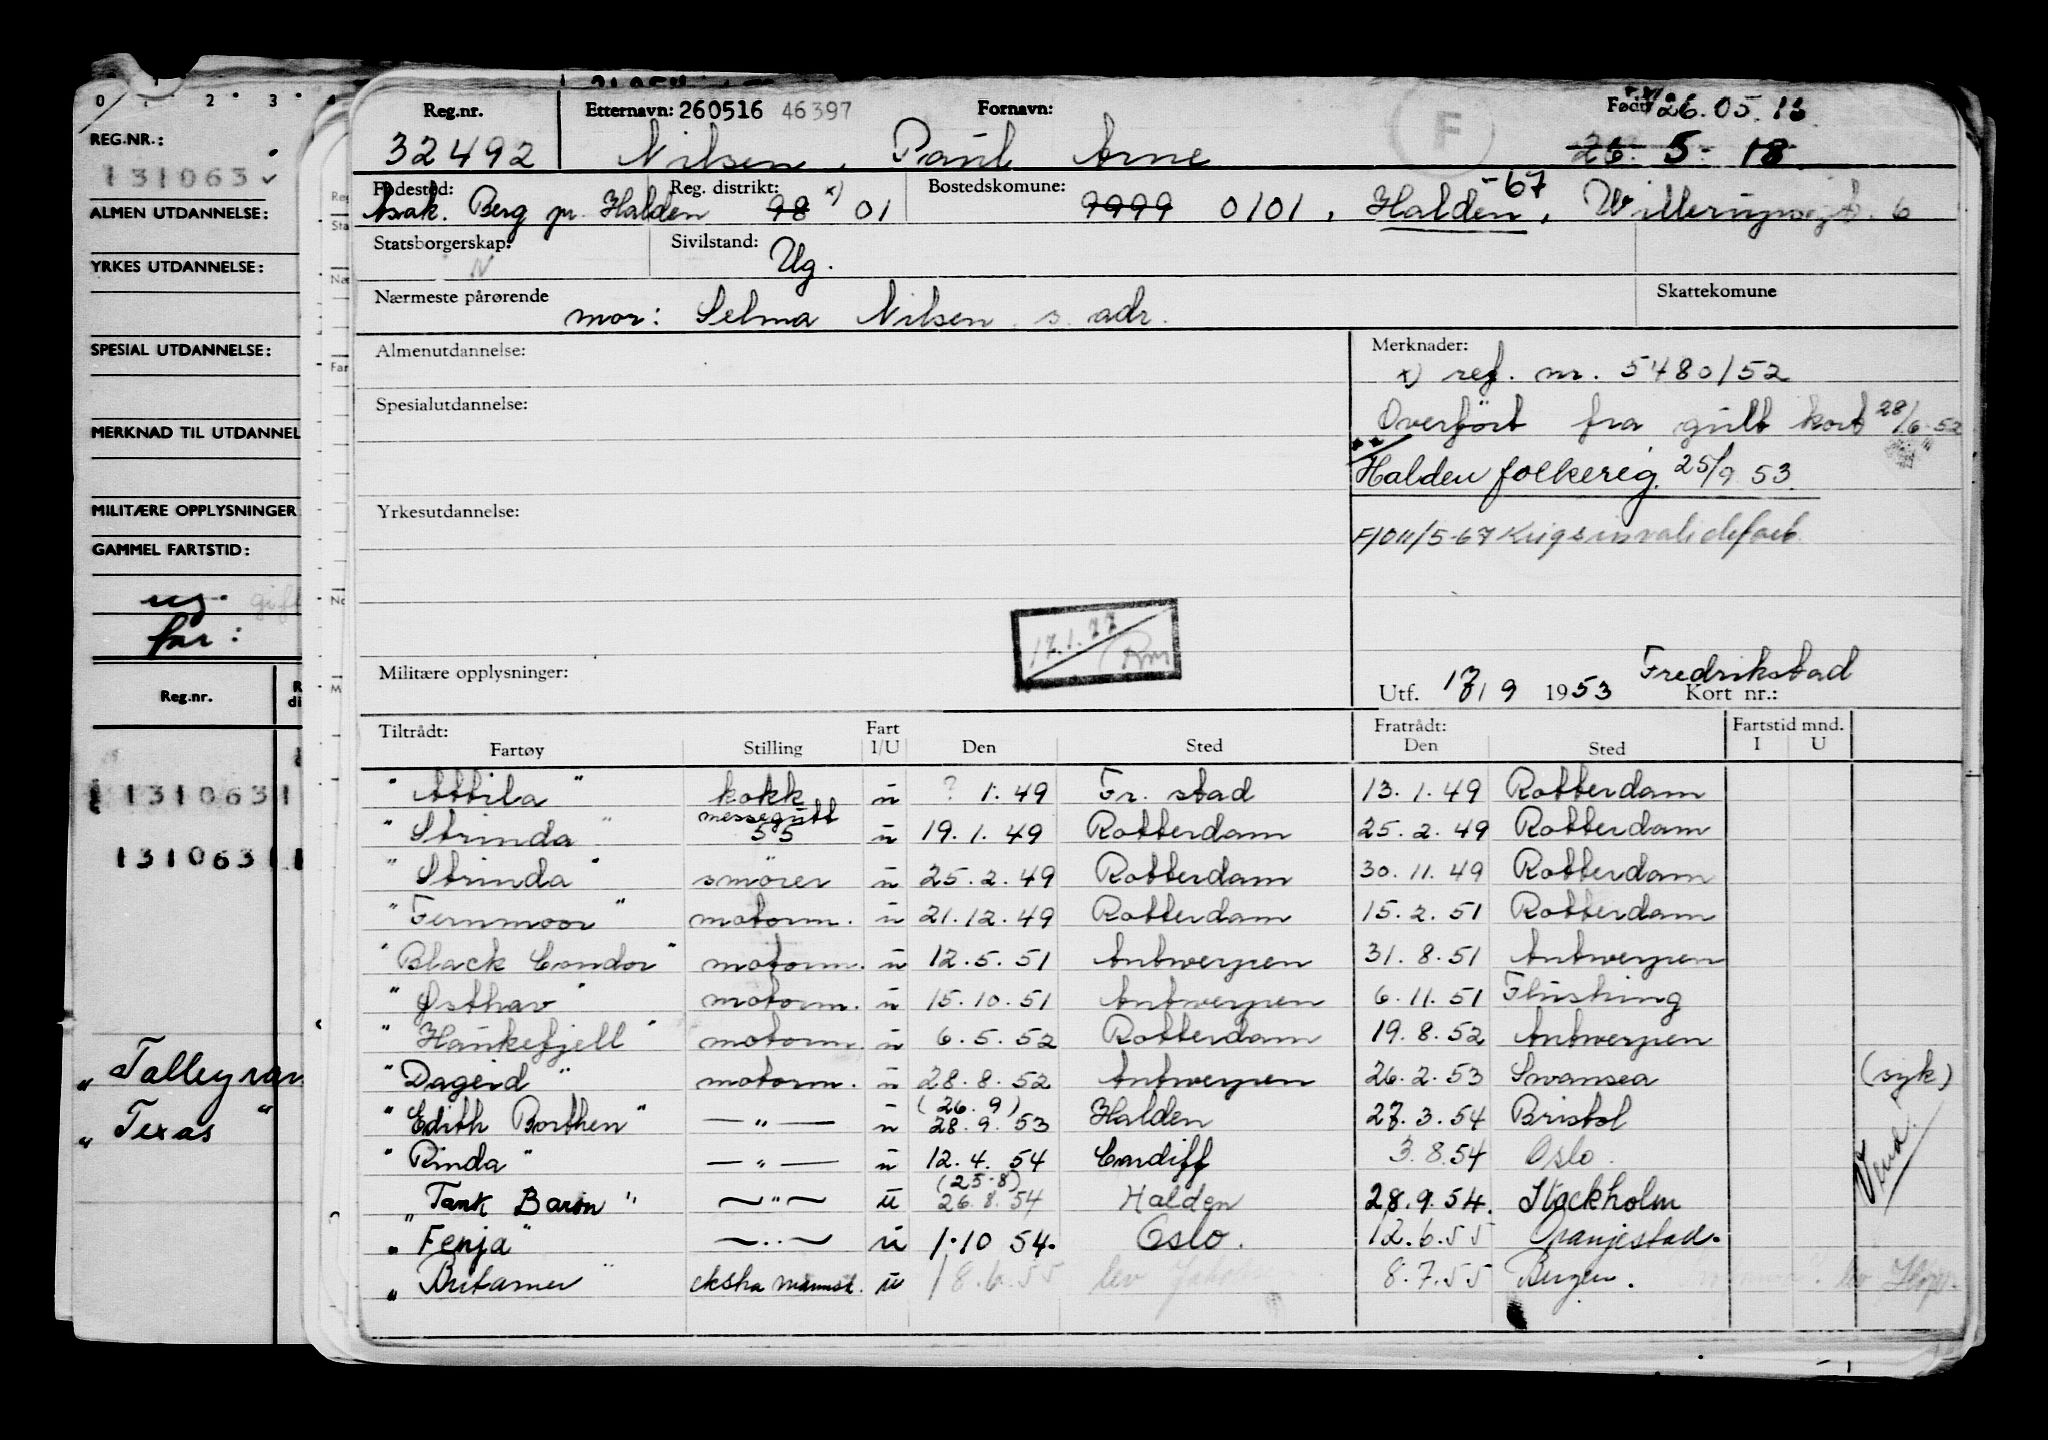 0 1 2 3
REG.NR.:
131063
ALMEN UTDANNELSE:
YRKES UTDANNELSE:
SPESIAL UTDANNELSE:
MERKNAD TIL UTDANNEL
MILITÆRE OPPLYSNINGER
GAMMEL FARTSTID:
ug. gift
far:
Reg.nr.
131063
131063
" Talleyran
" Texas "
Reg.nr. Etternavn: 260516 46397 Fornavn: F Født 26.05.13
32492 Nilsen, Paul Arne 26. 5- 18
Fødested: Reg. distrikt: x) Bostedskomune: -67
Asak. Berg pr. Halden 98 01 9999 0101, Halden, 6
Statsborgerskap: N Sivilstand: Ug.
Nærmeste pårørende mor: Selma Nilsen s. adr. Skattekomune
Almenutdannelse:
Spesialutdannelse:
Yrkesutdannelse:
Militære opplysninger:
17.1.77
Merknader:
x) reg. nr. 5480/52
Overført fra gult kort 28/6-52
Halden folkereg. 25/9 53.
Fredrikstad
Utf. 17/ 9 1953 Kort nr.:
Tiltrådt: Fart Fratrådt: Fartstid mnd.
Fartøy Stilling I/U Den Sted Den Sted I U
" Attila " kokk u ? 1. 49 Fr. stad 13. 1. 49 Rotterdam
" Strinda " messegutt 55 u 19. 1. 49 Rotterdam 25. 2. 49 Rotterdam
" Strinda " smører u 25. 2. 49 Rotterdam 30. 11. 49 Rotterdam
" Fernmoor " motorm. u 21. 12. 49 Rotterdam 15. 2. 51 Rotterdam
" Black Condor " motorm. u 12. 5. 51 Antwerpen 31. 8. 51 Antwerpen
" Østhav " motorm. u 15. 10. 51 Antwerpen 6. 11. 51 Flushing
" Haukefjell " motorm. u 6. 5. 52 Rotterdam 19. 8. 52 Antwerpen
" Dageid " motorm. u 28. 8. 52 Antwerpen 26. 2. 53 Swansea (syk)
" Edith Borthen " — " — u (26. 9) 28. 9. 53 Halden 27. 3. 54 Bristol
" Rinda " — " — u 12. 4. 54 Cardiff 3. 8. 54 Oslo.
" Tank Baron " — " — u (25-8) 26. 8. 54 Halden 28. 9. 54. Stockholm
" Fenja " — " — u 1. 10 54. Oslo. 12. 6. 55 Oranjestad.
" Britamer " eksha mannsk. u 18. 6. 55 8. 7. 55 Bergen.
Vend.